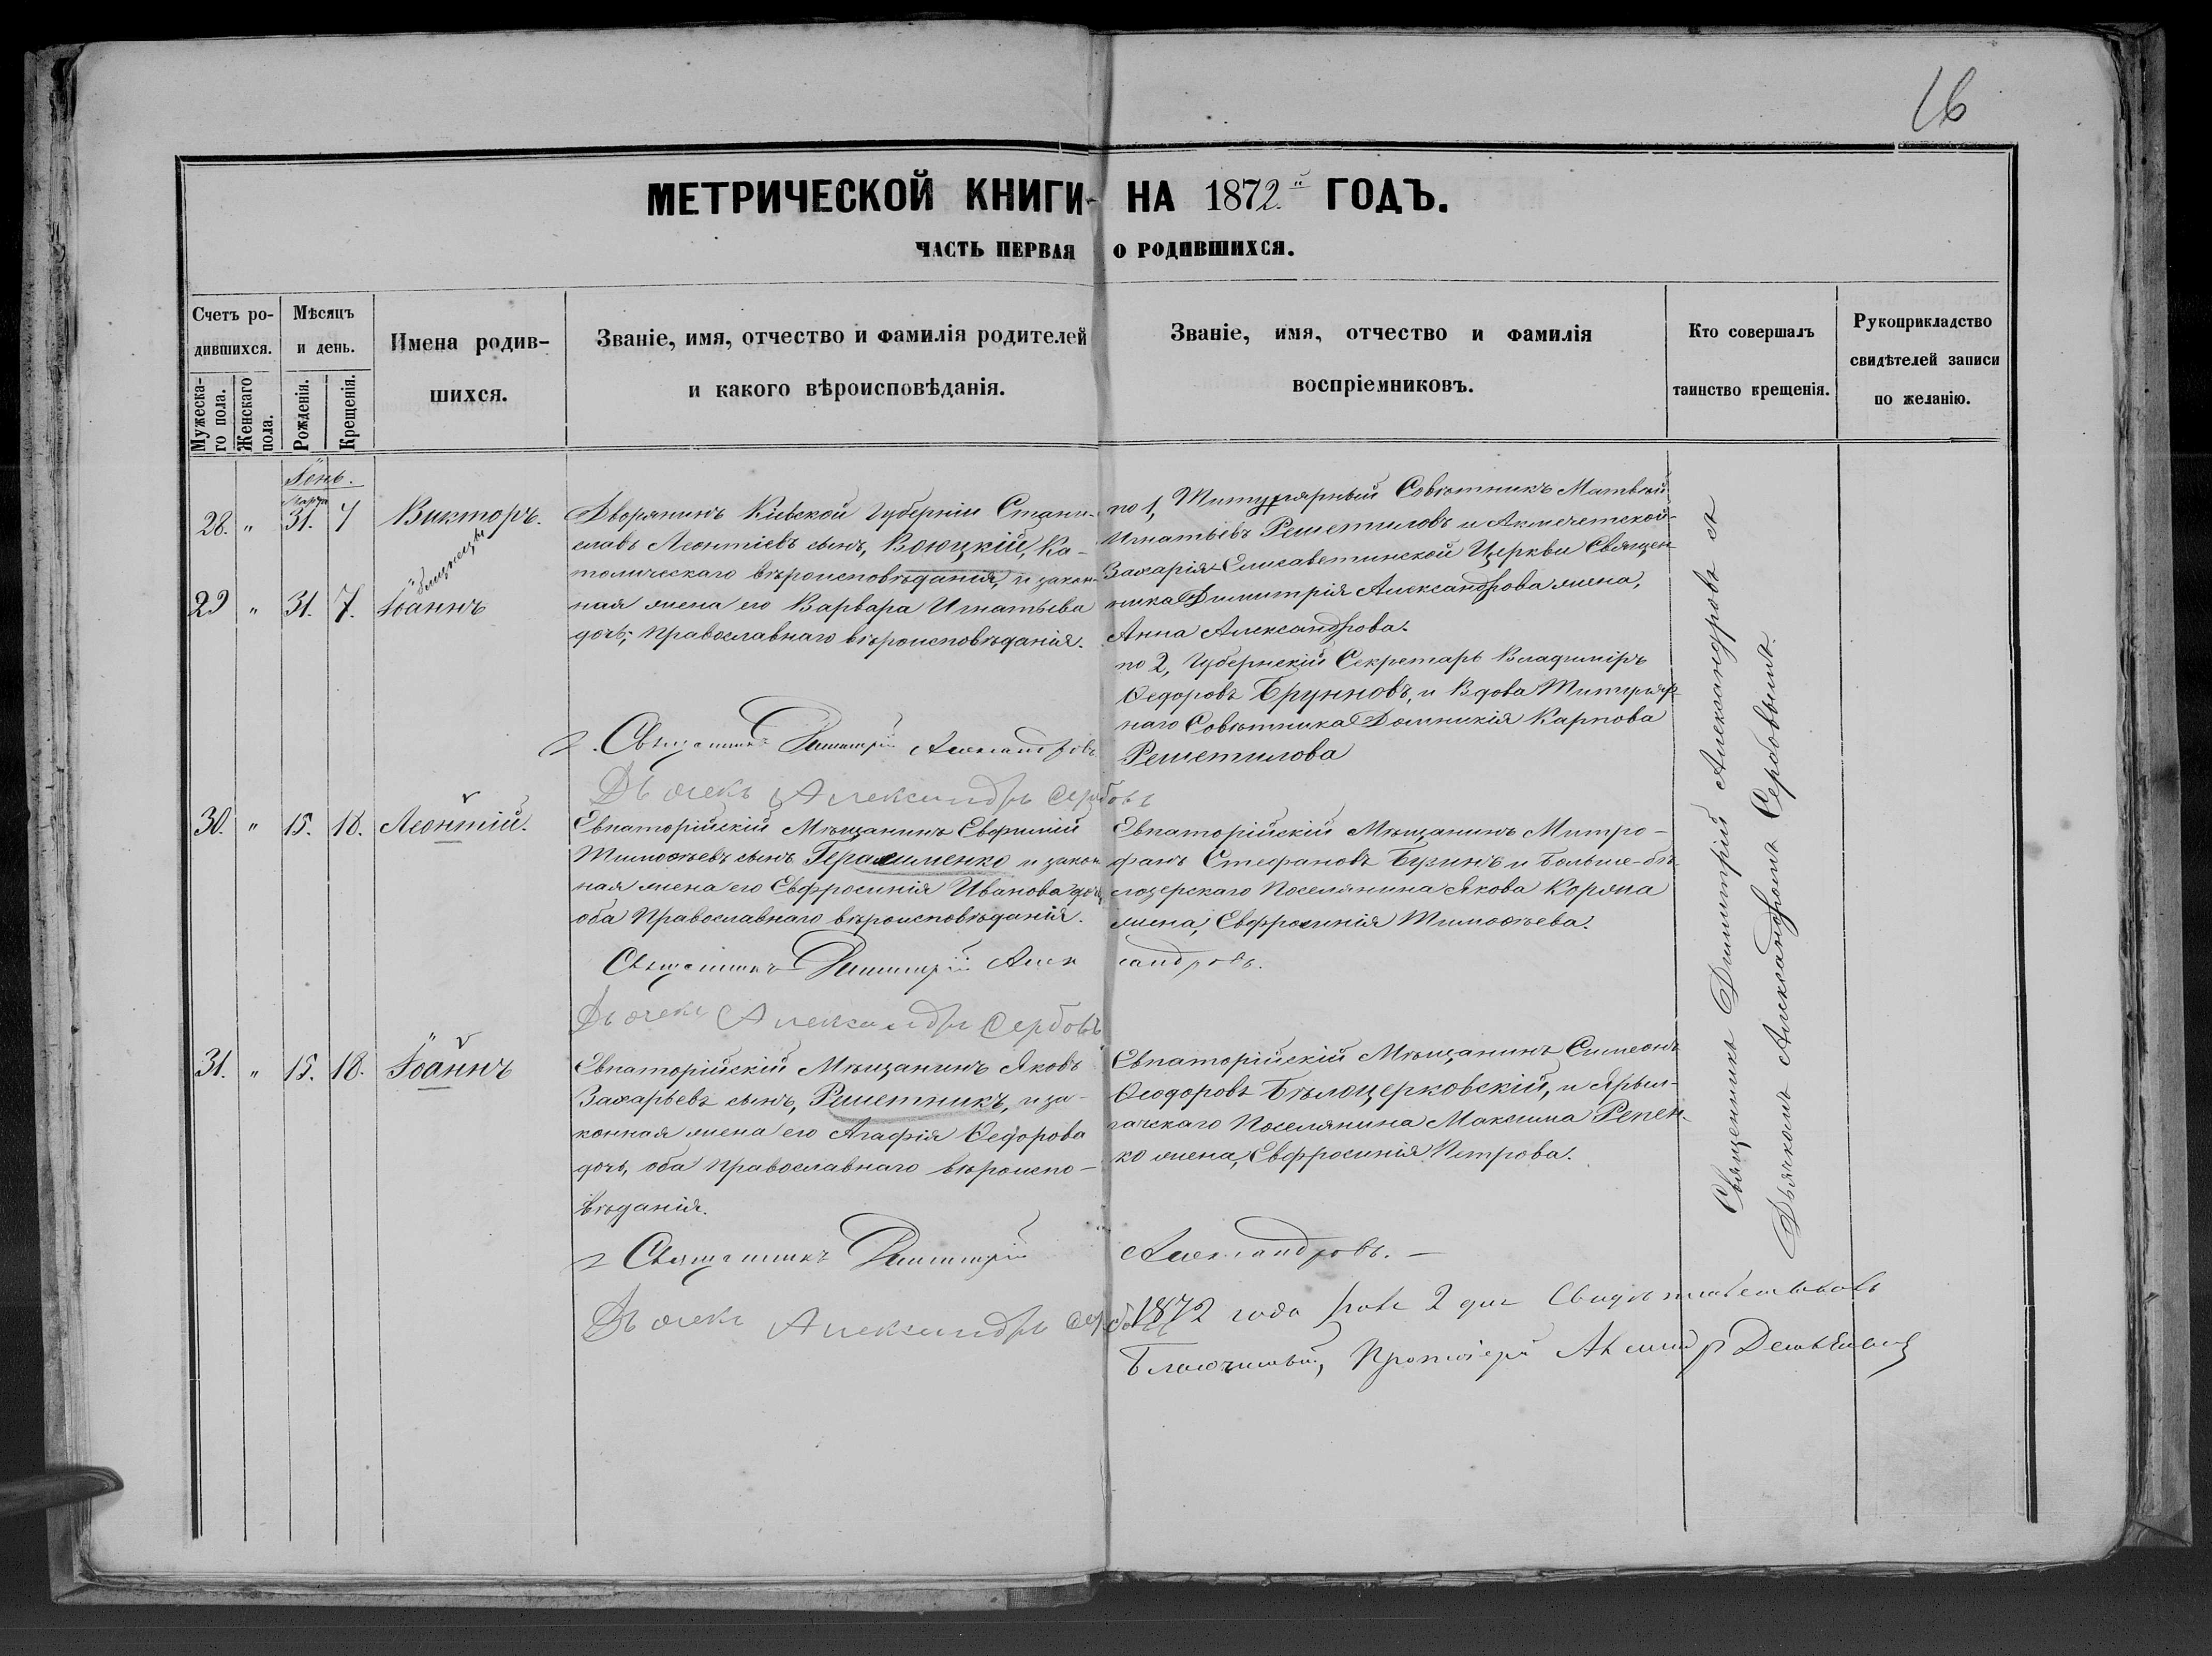 16
МЕТРИЧЕСКОЙ КНИГИ НА 1872й ГОДЪ.
ЧАСТЬ ПЕРВАЯ О РОДИВШИХСЯ.
Счетъ ро-
дившихся.
Мужеска-
го пола.
Женскаго
пола.
Мѣсяцъ
и день.
Рожденія.
Крещенія.
Имена родив-
шихся.
Званіе, имя, отчество и фамилія родителей
и какого вѣроисповѣданія.
Званіе, имя, отчество и фамилія
воспріемниковъ.
Кто совершалъ
таинство крещенія.
Рукоприкладство
свидѣтелей записи
по желанію.
28. " 31. 7 Викторъ.
близнецы
29 " 31. 7. Іоаннъ
Дворянинъ Кіевской Губерніи Стани-
славъ Леонтіевъ сынъ, Воюцкій, Ка-
толическаго вѣроисповѣданія, и закон-
ная жена его Варвара Игнатьева
дочь, Православнаго вѣроисповѣданія.
по 1, Титулярный Совѣтникъ Матвѣй
Игнатьевъ Решетиловъ и Акмечетской
Захаріе-Елисаветинской Церкви Священ-
ника Димитрія Александрова жена,
Анна Александрова.
по 2, Губернскій Секретарь Владиміръ
Ѳедоровъ Брунновъ, и Вдова Титуляр-
наго Совѣтника Домникія Карпова
Решетилова
Священникъ Димитрій Александровъ
Дьячекъ Александръ Сербовъ
30. " 15. 18. Леонтій.
Евпаторійскій Мѣщанинъ Евфимій
Тимоѳеевъ сынъ Герасименко и закон
ная жена его Евфросинія Иванова дочь
оба Православнаго вѣроисповѣданія.
Евпаторійскій Мѣщанинъ Митро-
фанъ Стефановъ Бузинъ и Больше-бѣ-
лозерскаго Поселянина Якова Коржа
жена, Евфросинія Тимоѳеева.
Священникъ Димитрій Александровъ.
Дьячекъ Александръ Сербовъ
31. " 15. 18. Іоаннъ
Евпаторійскій Мѣщанинъ Яковъ
Захарьевъ сынъ, Решетникъ, и за-
конная жена его Агафія Ѳедорова
дочь, оба Православнаго вѣроиспо-
вѣданія.
Евпаторійскій Мѣщанинъ Симеонъ
Ѳеодоровъ Бѣлоцерковскій, и Ярыл-
гачскаго Поселянина Максима Репен-
ко жена, Евфросинія Петрова.
Священникъ Димитрій Александровъ.
Дьячекъ Александръ Сербовъ
Священникъ Димитрій Александровъ съ
Дьячкомъ Александромъ Сербовымъ.
1872 года 2 дня Свидѣтельствовалъ
Благочинный, Протоіерей